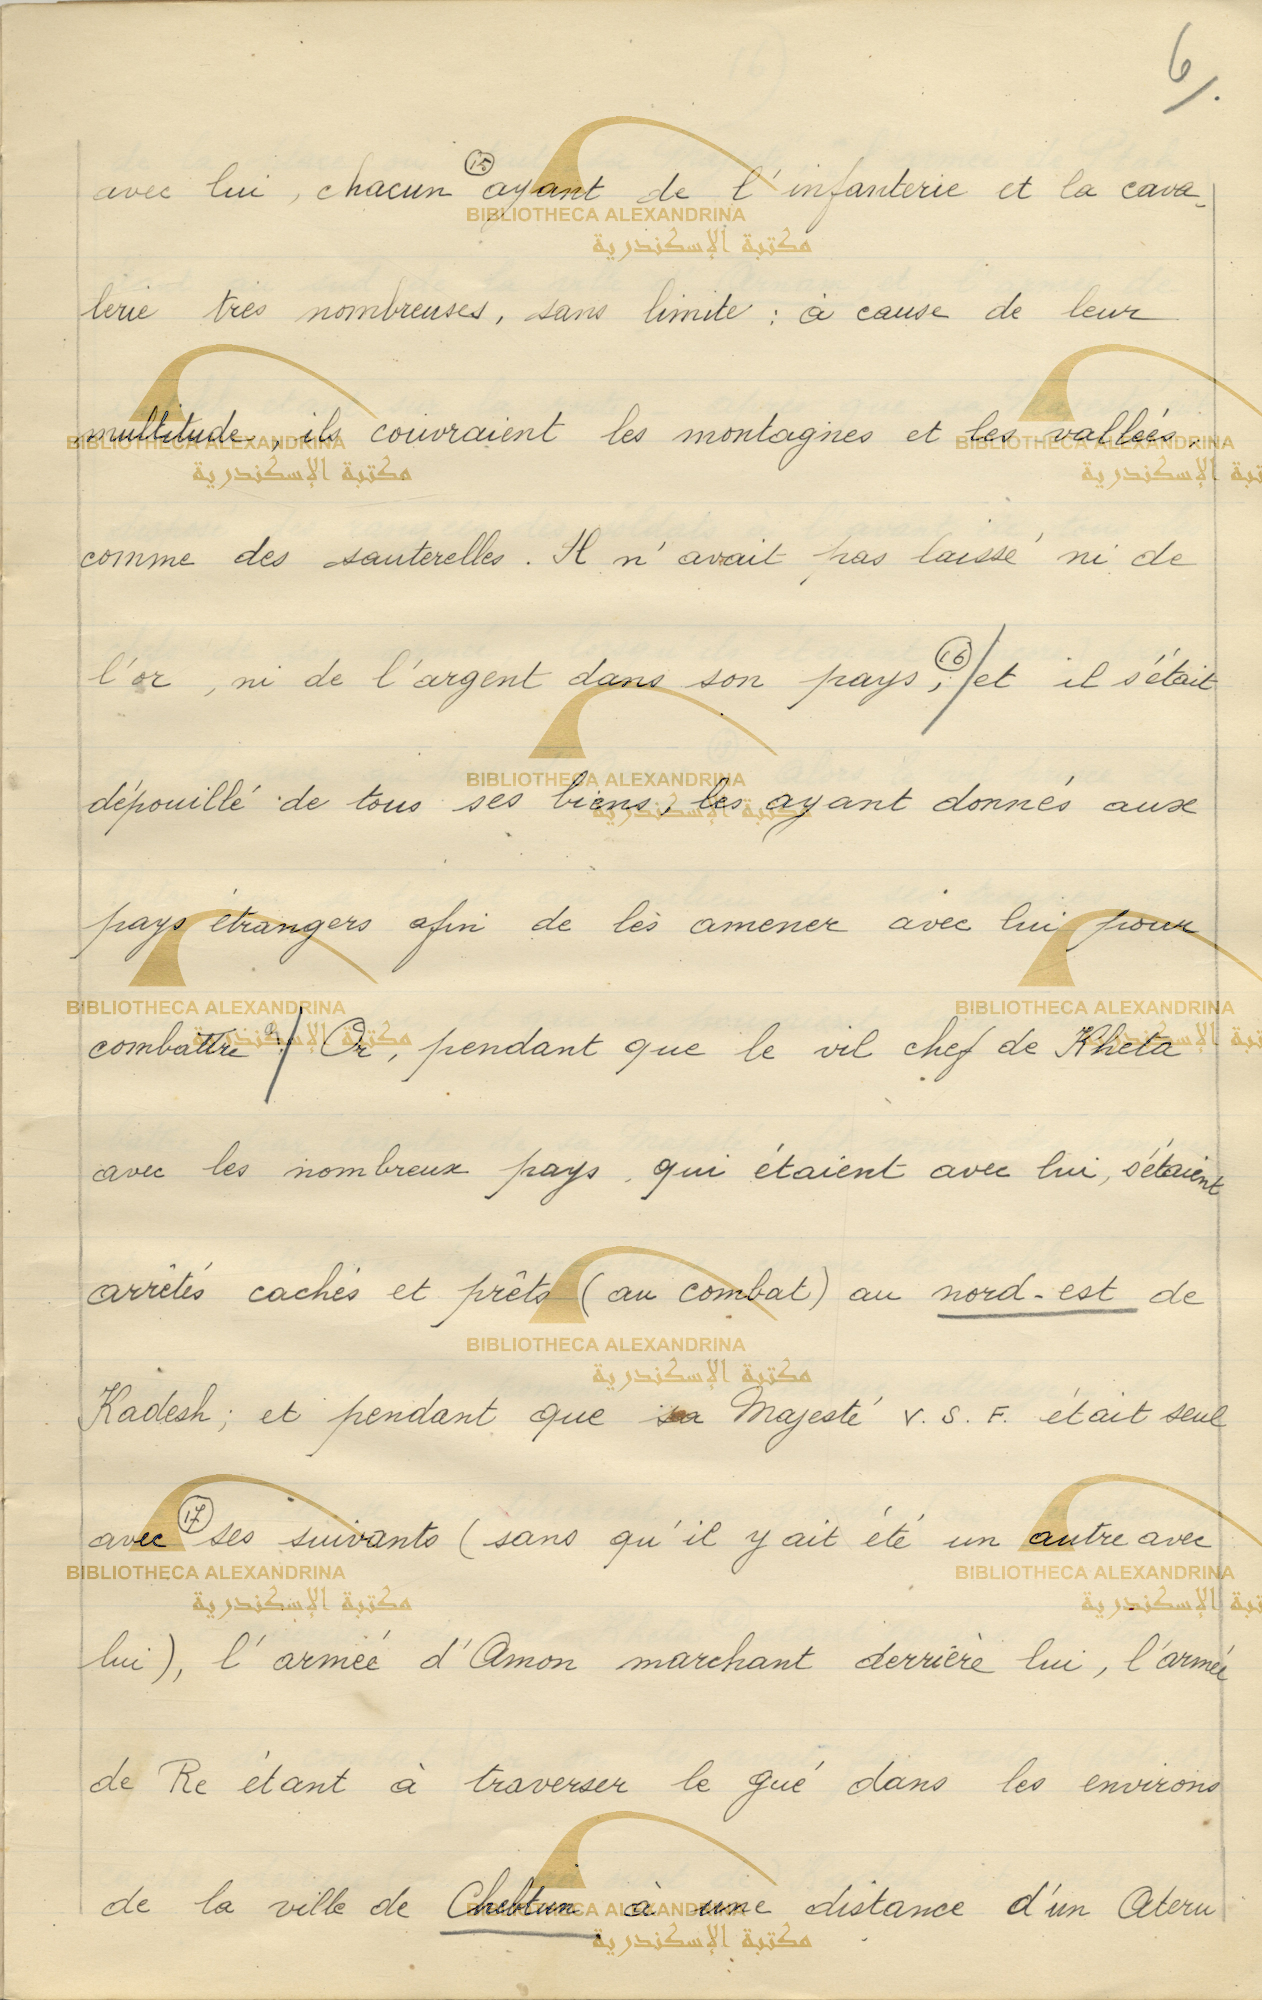 6/.
avec lui, chacun (15) ayant de l'infanterie et la cava-
lerie très nombreuses, sans limite : à cause de leur
multitude, ils couvraient les montagnes et les vallées,
comme des sauterelles. Il n'avait pas laissé ni de
l'or, ni de l'argent dans son pays, (16) / et il s'était
dépouillé de tous ses biens, les ayant donnés aux
pays étrangers afin de les amener avec lui pour
combattre / Or, pendant que le vil chef de Kheta
avec les nombreux pays qui étaient avec lui, s'étaient
arrêtés cachés et prêts (au combat) au nord-est de
Kadesh; et pendant que sa Majesté V. S. F. était seul
avec (17) ses suivants (sans qu'il y ait été un autre avec
lui), l'armée d'Amon marchant derrière lui, l'armée
de Re étant à traverser le gué dans les environs
de la ville de Chebtun à une distance d'un Ateru
BIBLIOTHECA ALEXANDRINA
مكتبة الإسكندرية